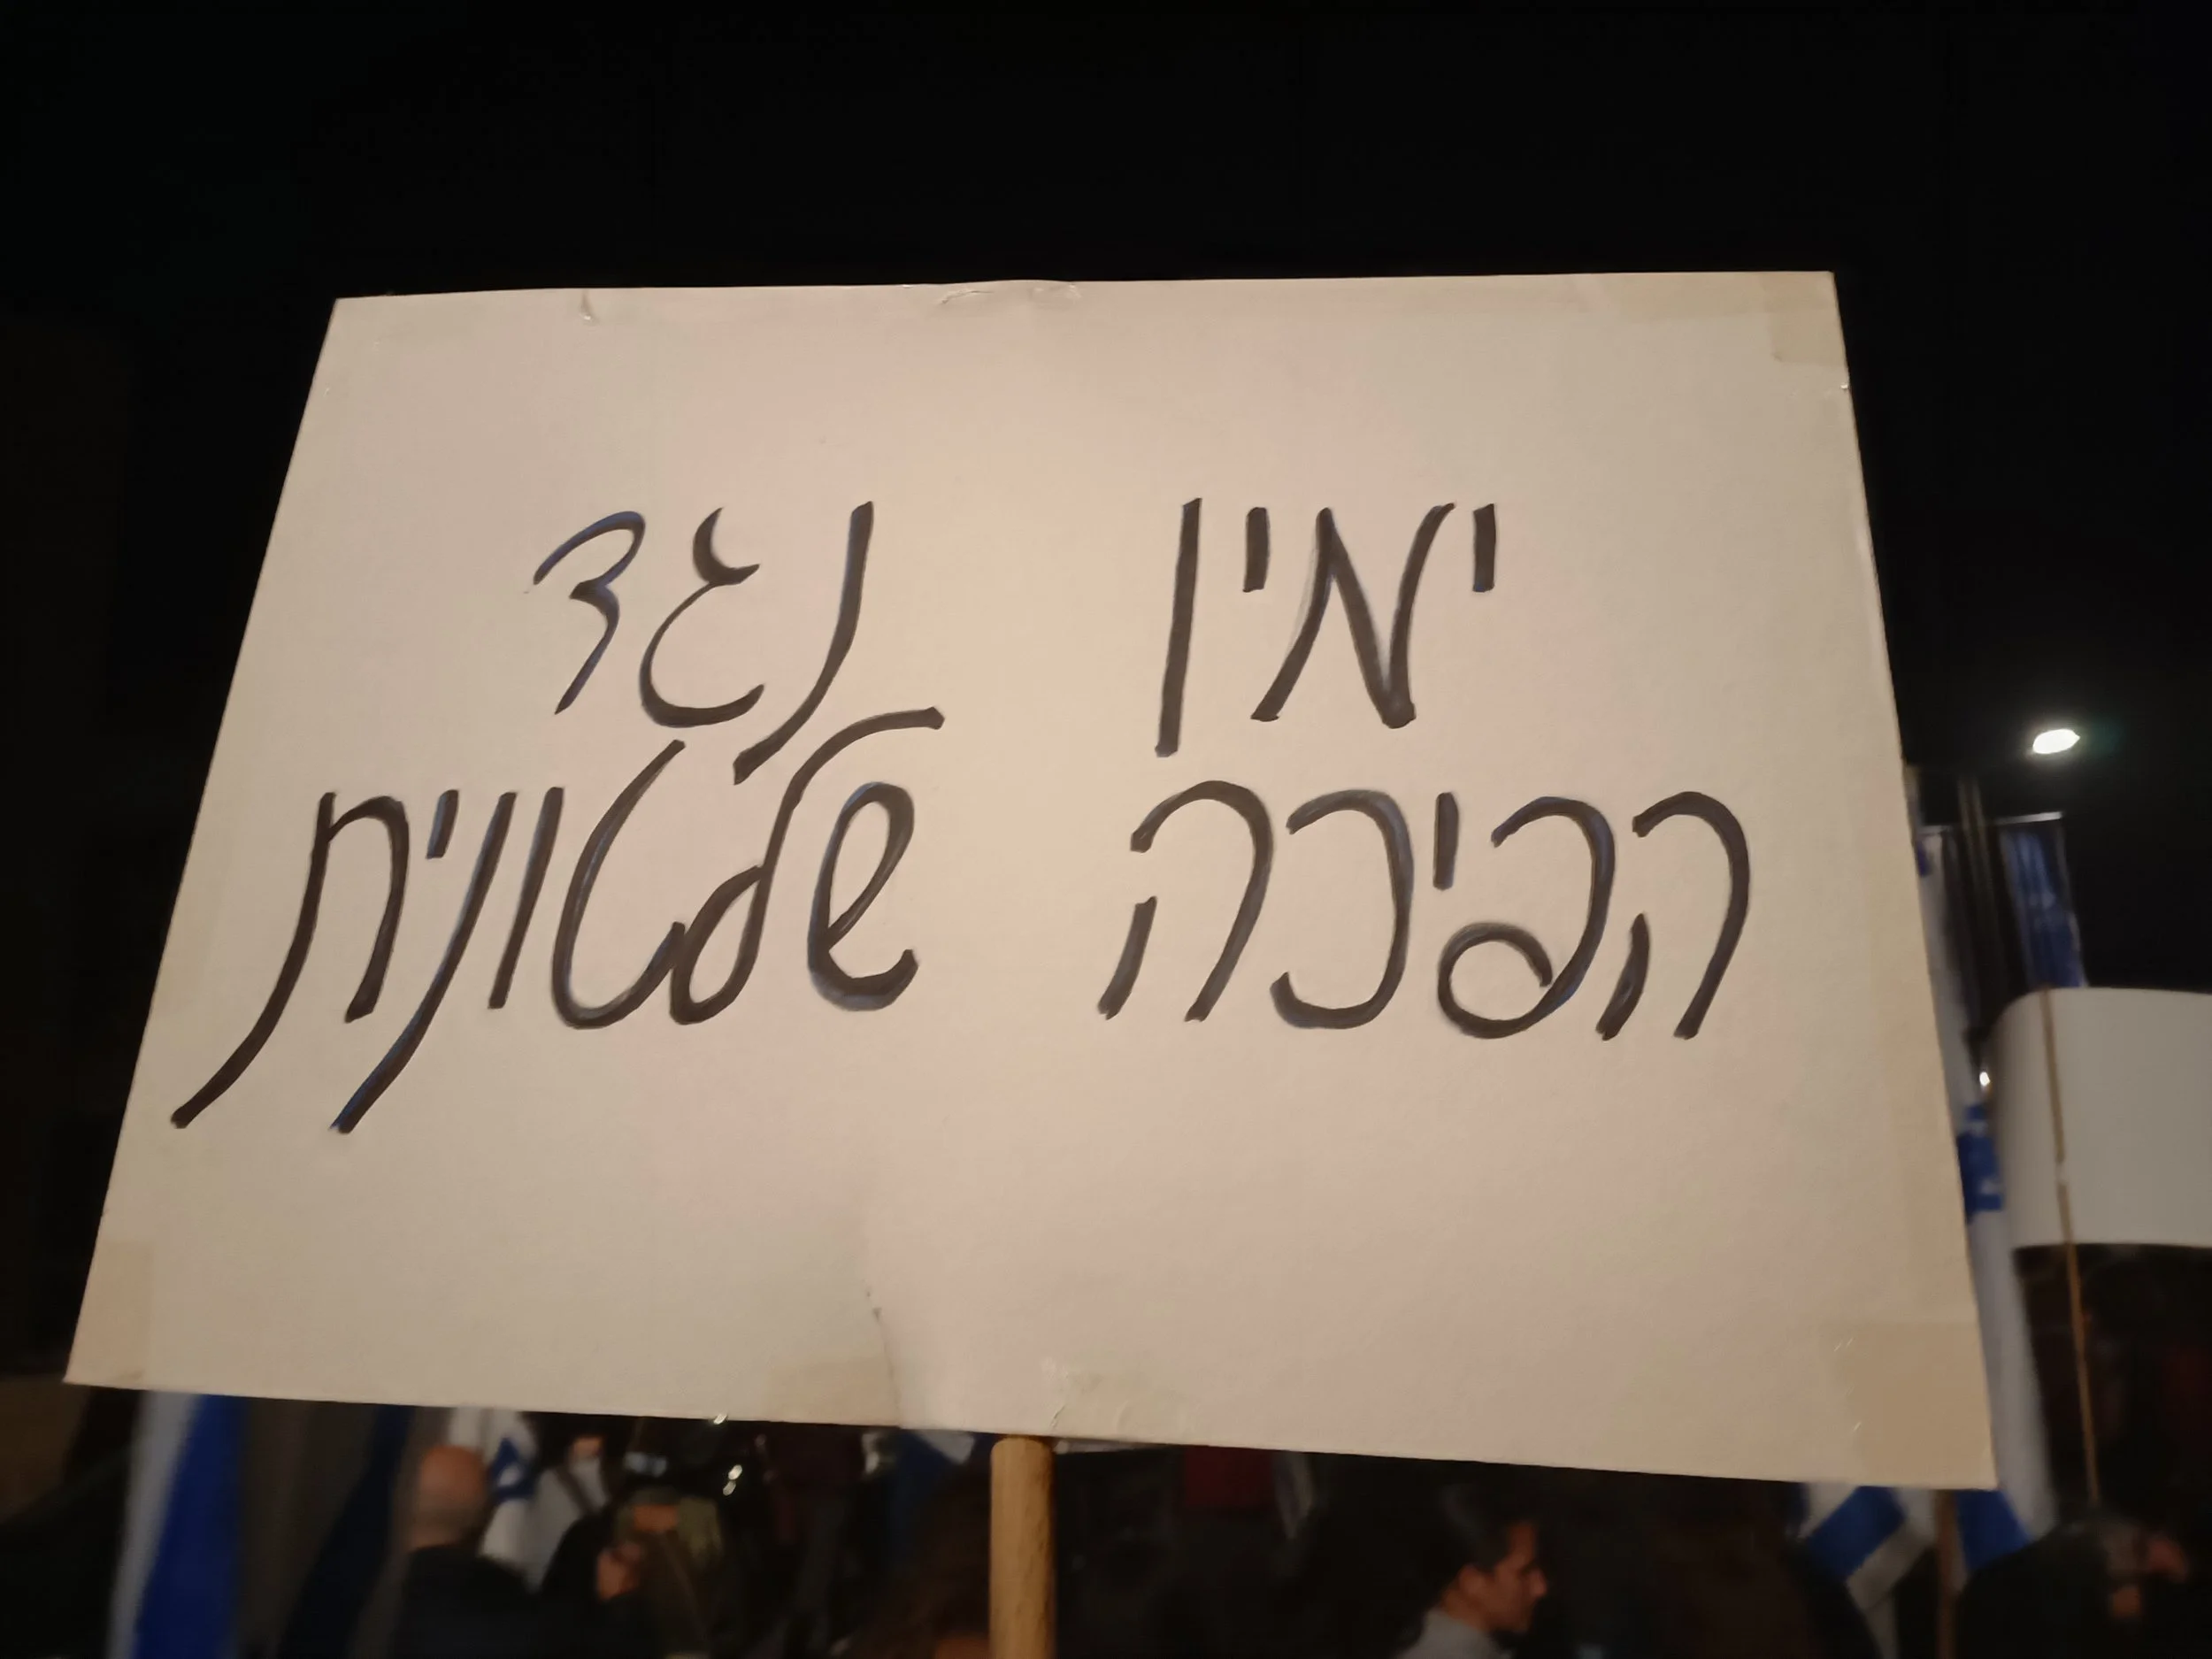 ימין נגד
הפיכה שלטונית